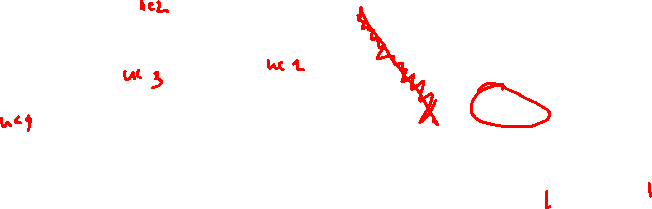 uc2
uc 3
uc 1
uc4